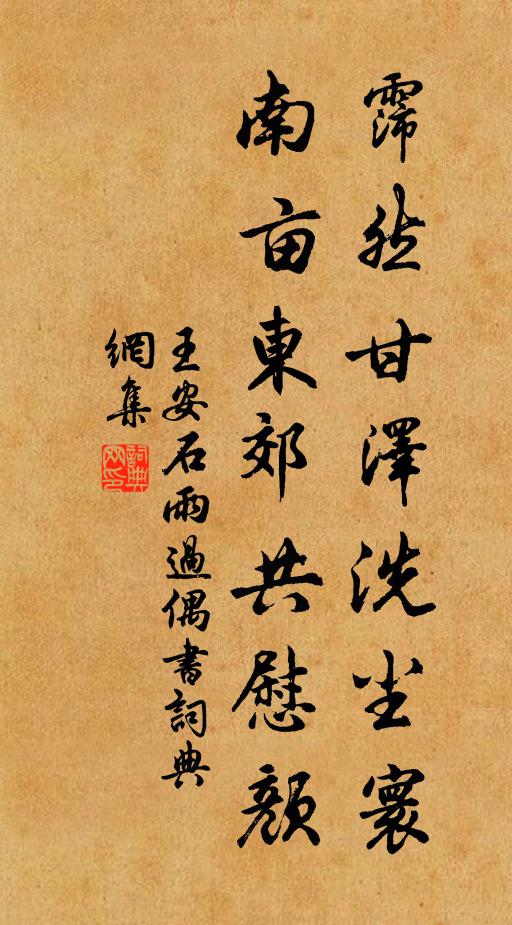 霈然甘澤洗尘寰
南亩東郊共慰颜
王安石雨過偶書詞典
網集
詞典網印